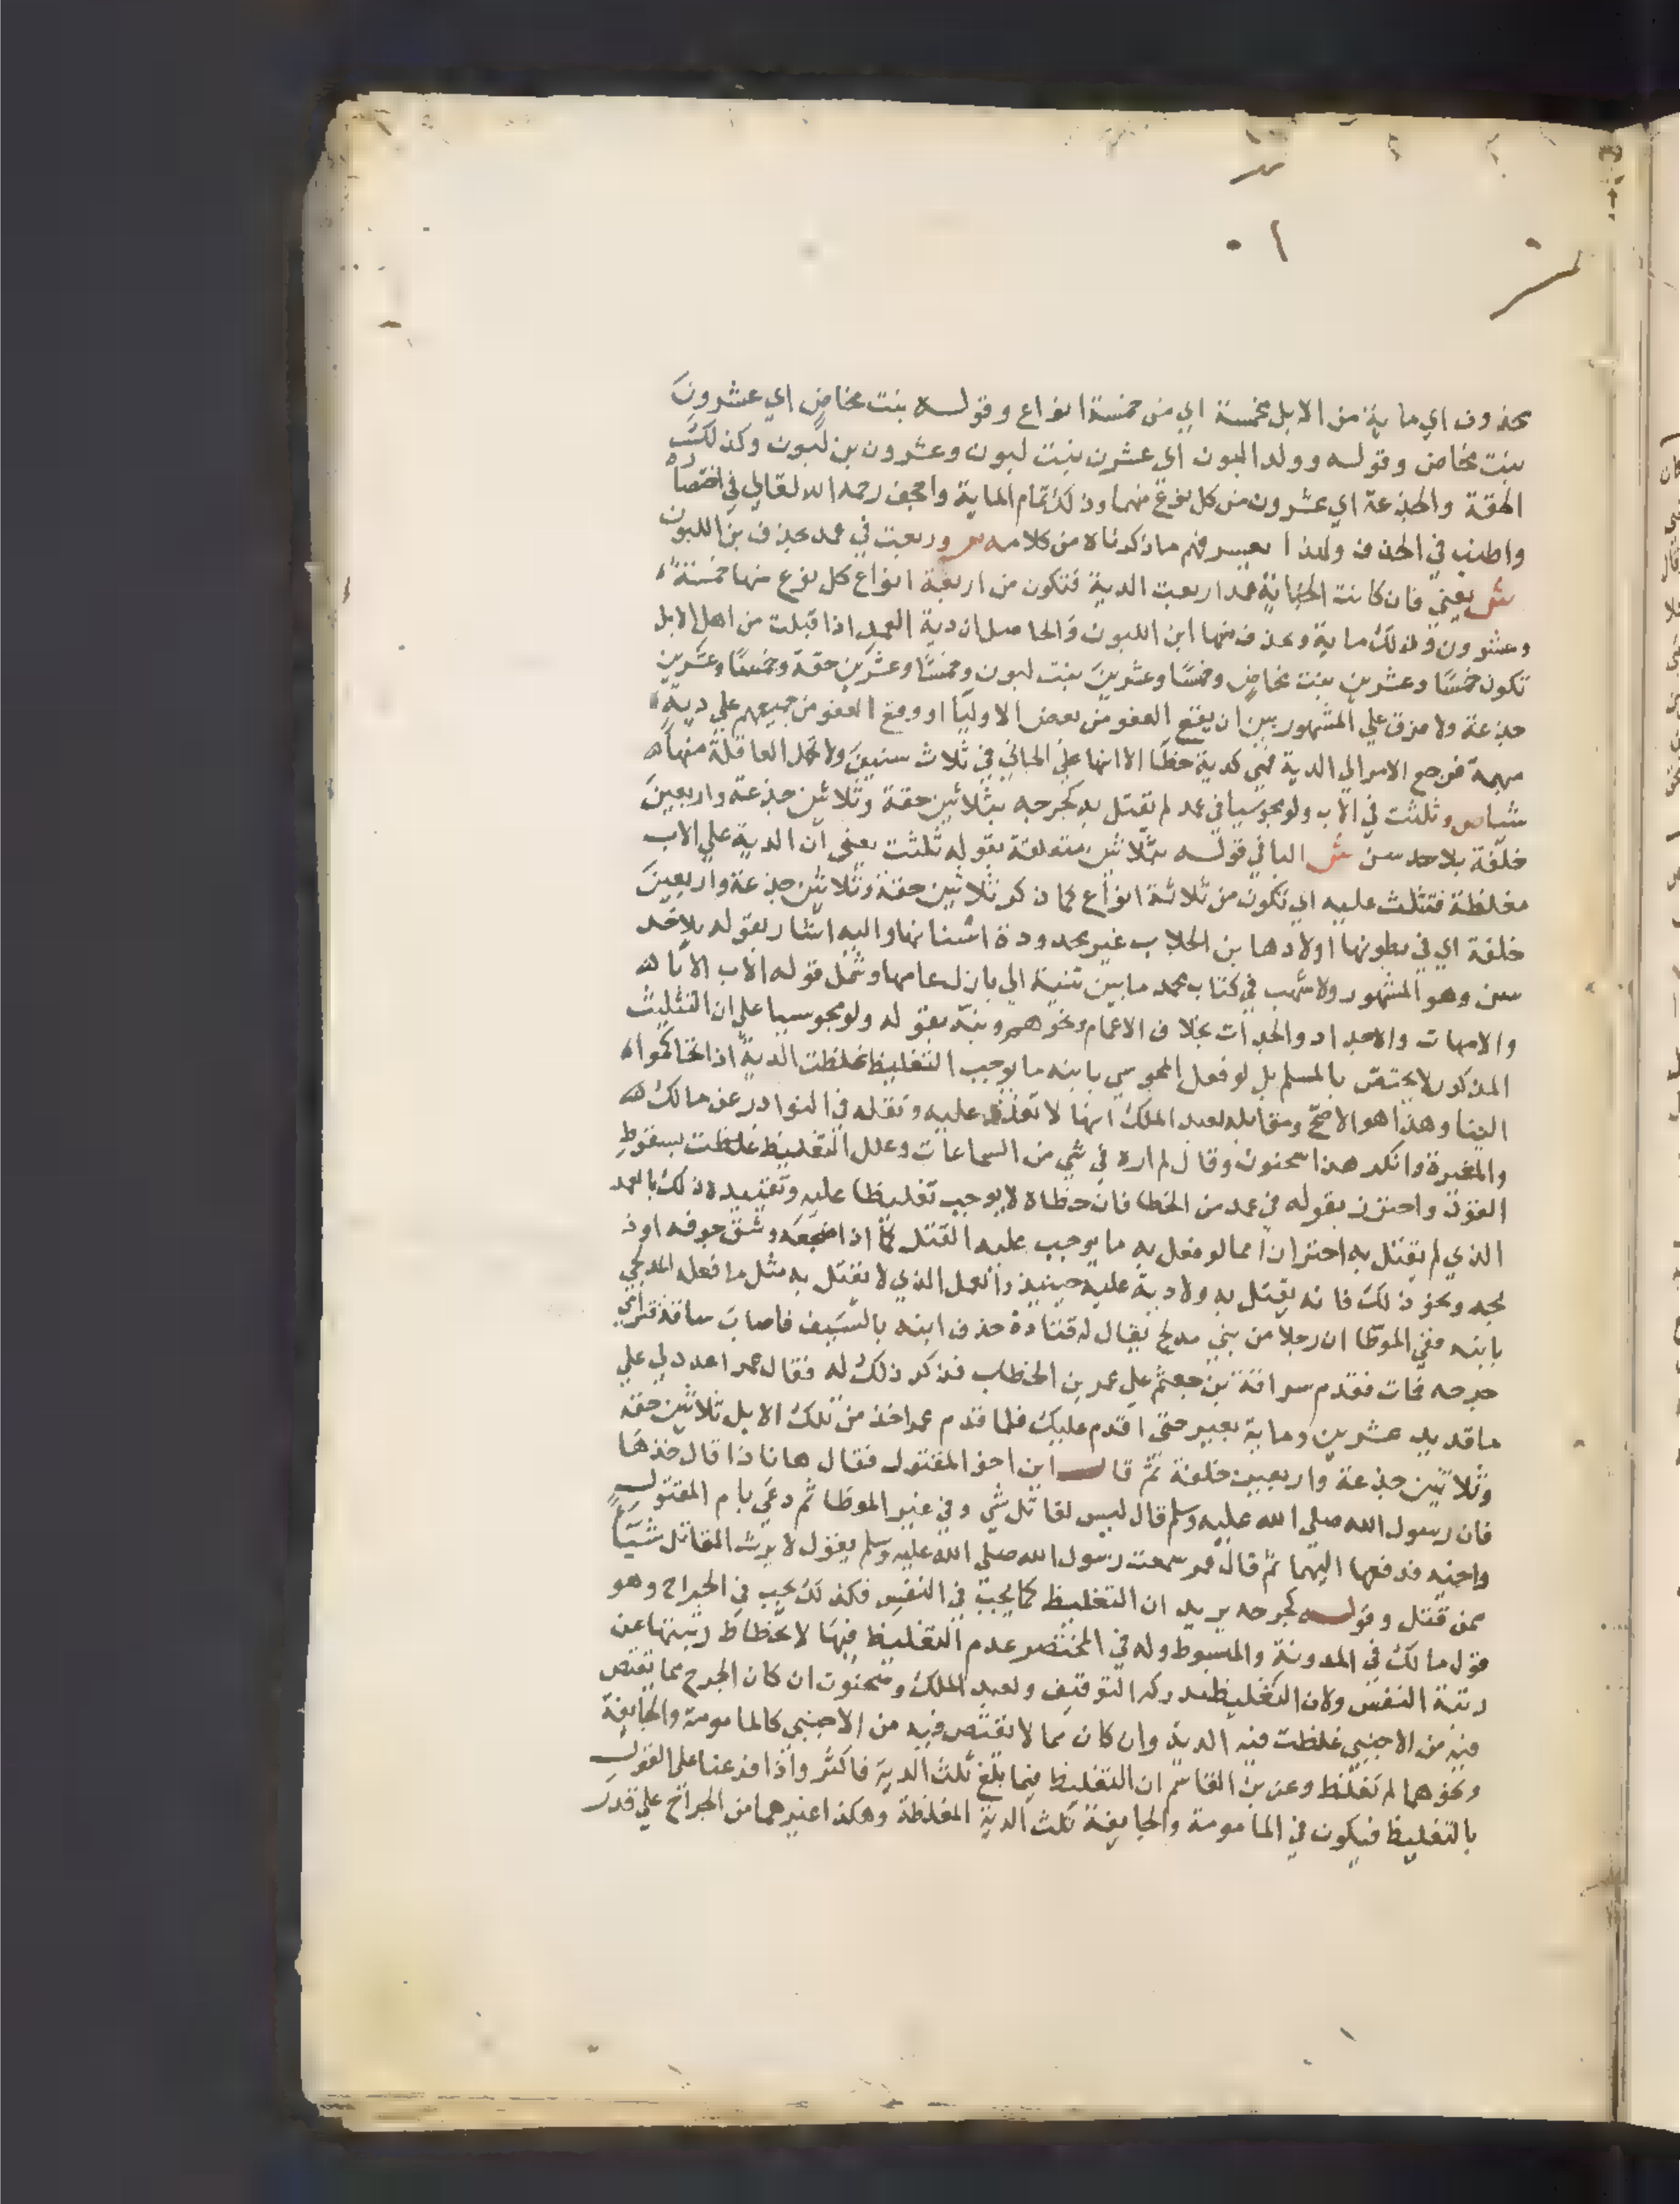 محذوف اي ماية من الابل مخمسة اي من خمسة انواع وقوله بنت مخاض اي عشرون
بنت مخاض وقوله وولد اللبون اي عشرن بنت لبون وعشرون بن لبون وكذلك
الحقة والجذعة اي عشرون من كل نوع منهما وذلك تمام الماية واجحف رحمه الله تعالي في اختصاره
واطنب في الحذف ولهذا يعسر فهم ما ذكرناه من كلامه ص وربعت في عمد بحذف بن اللبون
ش يعني فان كانت الجناية عمدا ربعت الدية فتكون من اربعة انواع كل نوع منها خمسة
وعشرون فذلك ماية ويحذف منها ابن اللبون والحاصل ان دية العمد اذا قبلت من اهل الابل
تكون خمسًا وعشرين بنت مخاض وخمسًا وعشرين بنت لبون وخمسًا وعشرين حقة وخمسًا وعشرين
جذعة ولا فرق علي المشهور بين ان يقع العفو من بعض الاوليا او وقع العفو من جميعهم علي دية
مبهمة فرجع الامر الي الدية فهي كدية خطا الا انها علي الجاني في ثلاث سنين ولا تحمل العاقلة منها
شيا ص وثلثت في الاب ولو مجوسيا في عمد لم يقتل به كجرحه بثلاثين حقة وثلاثين جذعة واربعين
خلفة بلا حد سن ش البا في قوله بثلاثين متعلقة بقوله ثلثت يعني ان الدية علي الاب
مغلظة فتثلث عليه اي تكون من ثلاثة انواع كما ذكر ثلاثين حقة وثلاثين جذعة واربعين
خلفة اي في بطونها اولادها بن الجلاب غير محدودة اسنانها واليه اشار بقوله بلا حد
سن وهو المشهور ولاشهب في كتاب محمد ما بين ثنية الي بازل عامها وشمل قوله الاب الابا
والامهات والاجداد والجدات بخلاف الاعمام ونحوهم ونبه بقوله ولو مجوسيا علي ان التثليث
المذكور لا يختص بالمسلم بل لو فعل المجوسي بابنه ما يوجب التغليظ غلظت الدية اذا تحاكموا
الينا وهذا هو الاصح ومقابله لعبد الملك انها لا تغلظ عليه ونقله في النوادر عن مالك
والمغيرة وانكر هذا سحنون وقال لم اره في شي من السماعات وعلل التغليظ غلظت بسقوط
القود واحترز بقوله في عمد من الخطا فان خطاه لا يوجب تغليظا عليه وتقييده ذلك بالعمد
الذي لم يقتل به احترازا مما لو فعل به ما يوجب عليه القتل كما اذا اضجعه وشق جوفه او ذ
بحه ونحو ذلك فانه يقتل به ولا دية عليه حينيذ والعمد الذي لا يقتل به مثل ما فعل المدلجي
بابنه ففي الموطا ان رجلا من بني مدلج يقال له قتادة حذف ابنه بالسيف فاصاب ساقه فنزي
جرحه فمات فقدم سراقة بن جعثم علي عمر بن الخطاب فذكر ذلك له فقال عمر اعدد لي علي
ما قديد عشرين وماية بعير حتى اقدم عليك فلما قدم عمر اخذ من تلك الابل ثلاثين حقة
وثلاثين جذعة واربعين خلفة ثم قال اين اخو المقتول فقال هانا ذا قال خذها
فان رسول الله صلي الله عليه وسلم قال ليس لقاتل شي وفي غير الموطا ثم دعي بام المقتول
واخيه فدفعها اليهما ثم قال عمر سمعت رسول الله صلي الله عليه وسلم يقول لا يرث القاتل شيا
ممن قتل وقوله كجرحه يريد ان التغليظ كما يجب في النفس فكذلك يجب في الجراح وهو
قول مالك في المدونة والمبسوط وله في المختصر عدم التغليظ فيها لانحطاط رتبتها عن
رتبة النفس ولان التغليظ مدركه التوقيف ولعبد الملك وسحنون ان كان الجرح مما يقتص
فيه من الاجنبي غلظت فيه الدية وان كان مما لا يقتص فيه من الاجنبي كالمامومة والجايفة
ونحوهما لم تغلظ وعن بن القاسم ان التغليظ فيما بلغ ثلث الدية فاكثر واذا فرعنا علي القول
بالتغليظ فيكون في المامومة والجايفة ثلث الدية المغلظة وهكذا غيرهما من الجراح علي قدر